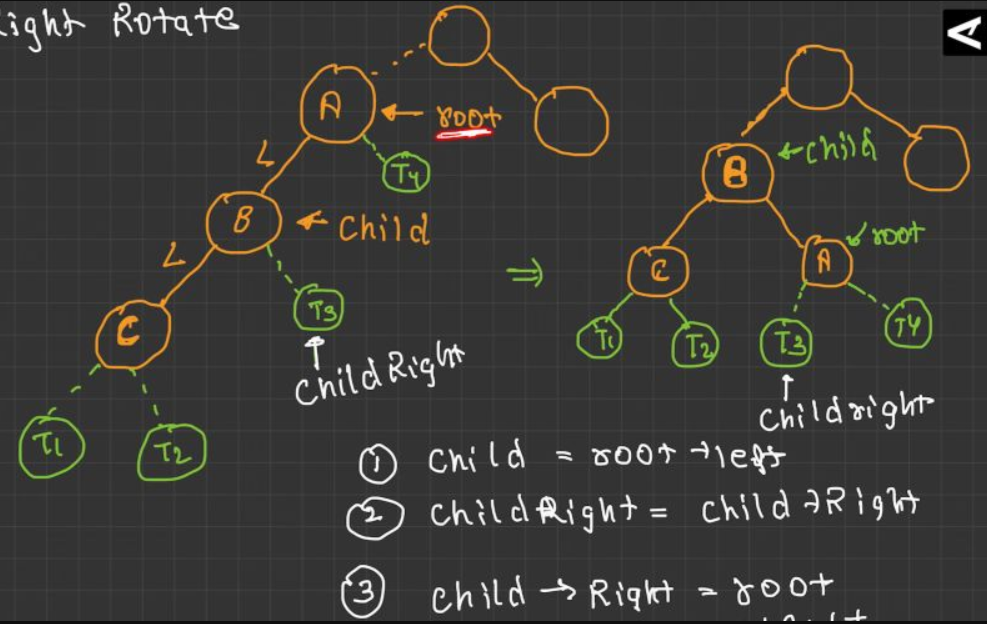 ight Rotate
A
← root
L
T4
B
← Child
L
T3
C
Child Right
T1
T2
⇒
B
← child
C
A
root
T1
T2
T3
T4
Child right
① Child = root → left
② Child Right = Child → Right
③ Child → Right = root